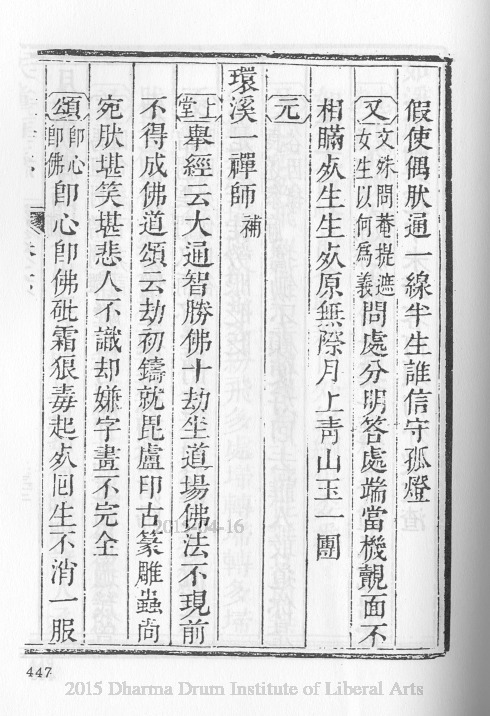 假使偶肰通一線半生誰信守孤燈
又文殊問菴提遮女生以何爲義問處分明答處端當機覿面不
相瞞𣦸生生𣦸原無際月上靑山玉一團
元
環溪一禪師補
上堂舉經云大通智勝佛十劫坐道場佛法不現前
不得成佛道頌云劫初鑄就毘盧印古篆雕蟲尚
宛肰堪笑堪悲人不識却嫌字畫不完全
頌卽心卽佛卽心卽佛砒霜狠毒起𣦸回生不消一服
2015-04-16
447
2015 Dharma Drum Institute of Liberal Arts